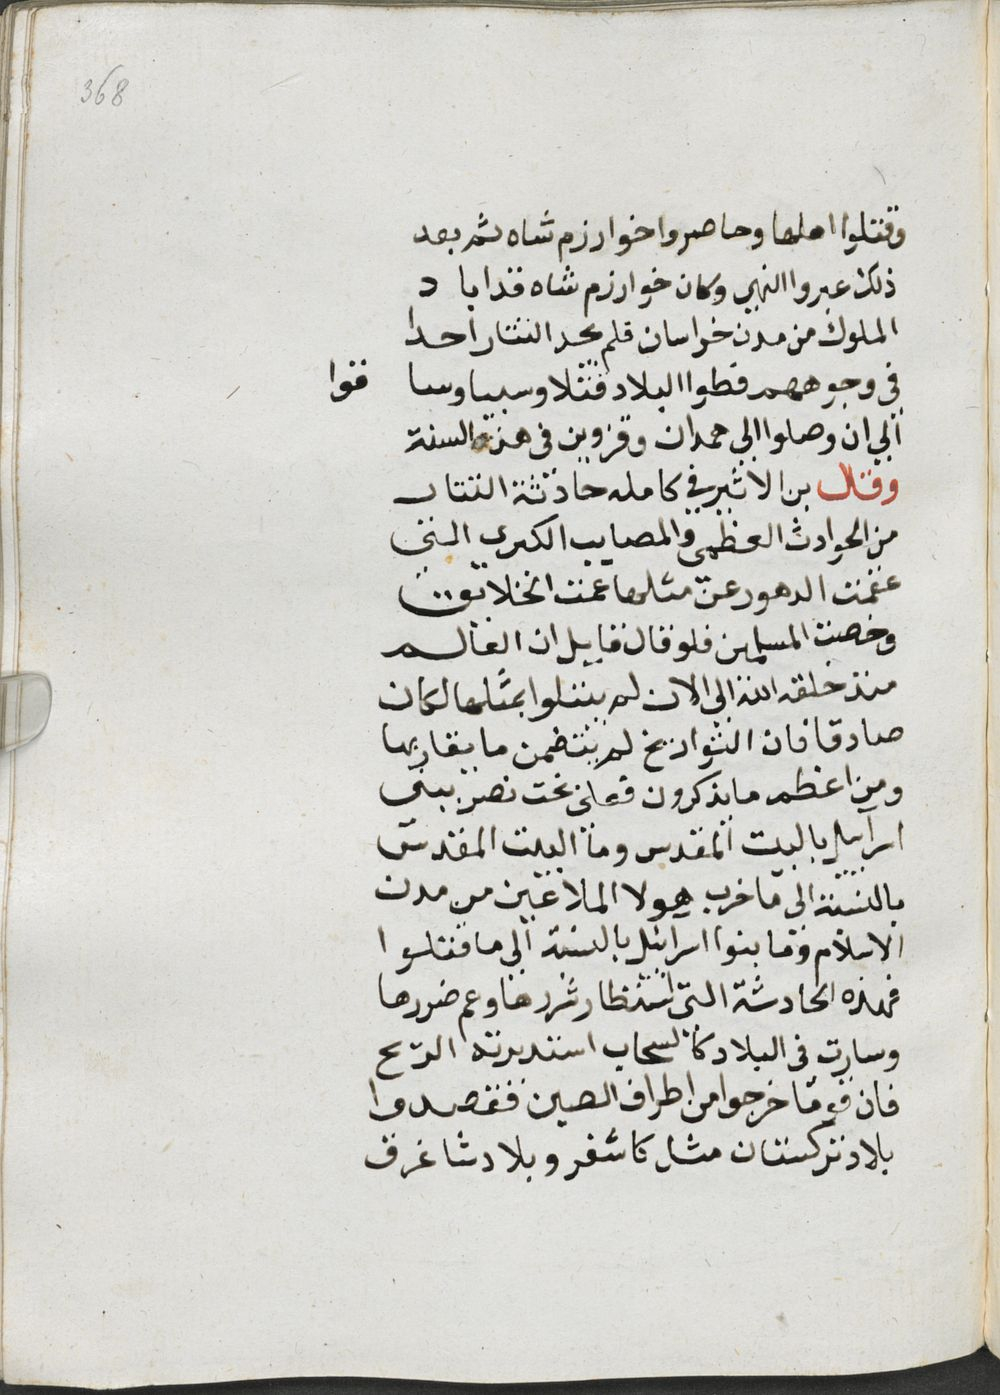 368
وقتلوا اهلها وحاصروا خوارزم شاه ثم بعد
ذلك عبروا النهر وكان خوارزم شاه قد اباد
الملوك من مدن خراسان فلم يجد التتار احدا
في وجوههم فطووا البلاد قتلا وسبيا وساقوا
الي ان وصلوا الى همدان وقزوين في هذه السنة
وقال بن الاثير في كامله حادثة التتار
من الحوادث العظمى والمصايب الكبرى التي
عقمت الدهور عن مثلها عمت الخلايق
وخصت المسلمين فلو قال قايل ان العالم
منذ خلقه الله الى الان لم يبتلوا بمثلها لكان
صادقا فان التواريخ لم يتضمن ما يقاربها
ومن اعظم ما يذكرون فعل بخت نصر ببني
اسراييل بالبيت المقدس وما البيت المقدس
بالنسبة الى ما خرب هولا الملاعين من مدن
الاسلام وما بنوا اسراييل بالنسبة الي ما قتلوا
فهذه الحادثة التي استطار شررها وعم ضررها
وسارت في البلاد كالسحاب استدبرته الريح
فان قوما خرجوا من اطراف الصين فقصدوا
بلاد تركستان مثل كاشغر وبلاد شاغرق